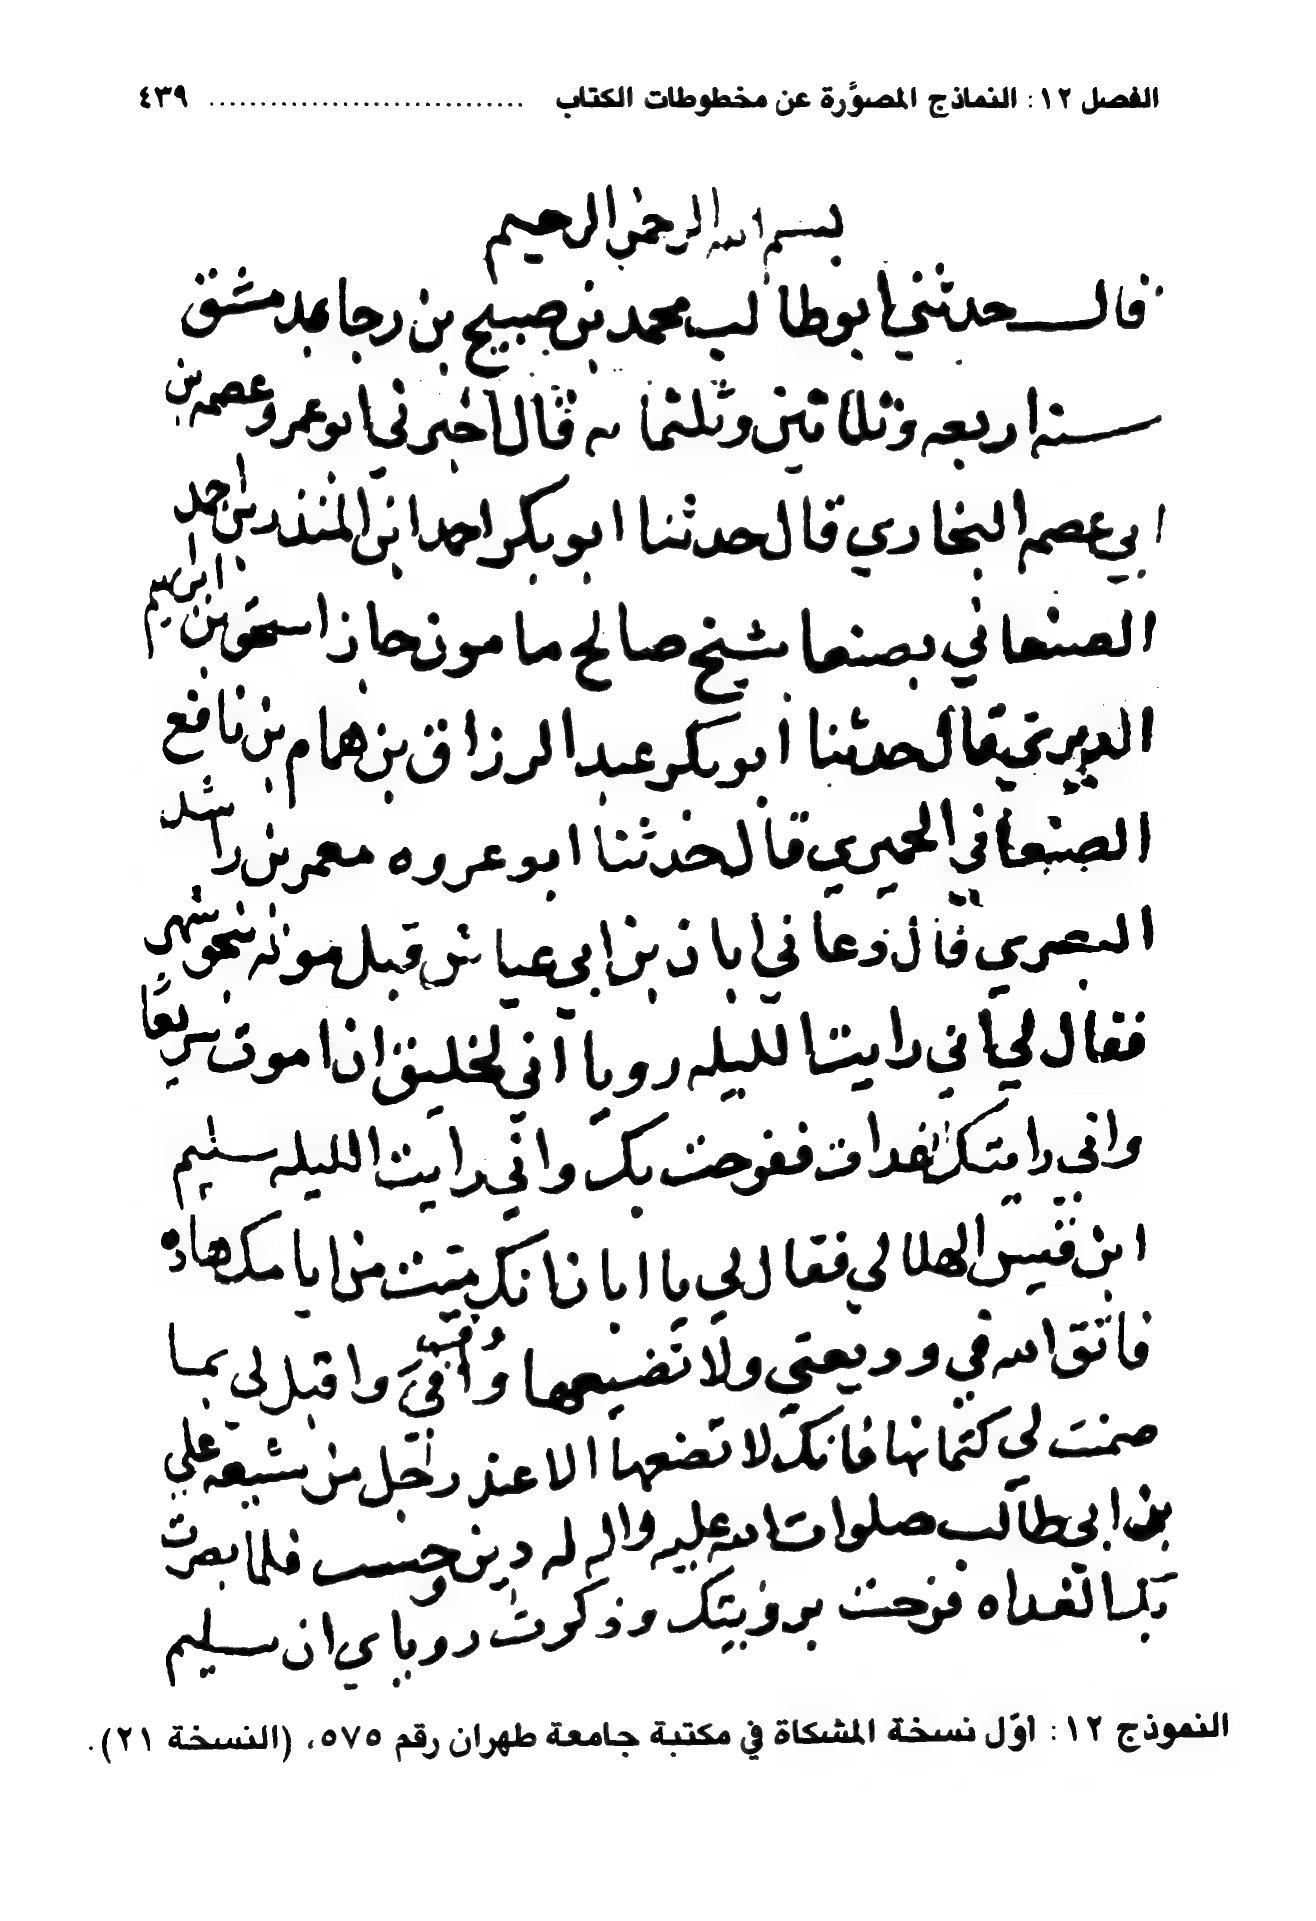 الفصل ١٢: النماذج المصوَّرة عن مخطوطات الكتاب .............................. ٤٣٩
بسم الله الرحمن الرحيم
قال حدثني ابو طالب محمد بن صبيح بن رجا بدمشق
سنه اربعه وثلاثين وثلثمايه قال اخبرني ابو عمرو عصمه بن
ابي عصمه البخاري قال حدثنا ابو بكر احمد ابن المنذر بن احمد
الصنعاني بصنعا شيخ صالح مامون جاز اسحق بن ابرهيم
الديري قال حدثنا ابو بكر عبد الرزاق بن همام بن نافع
الصنعاني الحميري قال حدثنا ابو عروه معمر بن راشد
البصري قال دعاني ابان بن ابي عياش قبل موته بنحو شهر
فقال لي اني رايت الليله رويا اني لخليق ان اموت سريعًا
واني رايتك الغداة ففرحت بك واني رايت الليله سليم
ابن قيس الهلالي فقال لي يا ابان انك ميت من ايامك هاذه
فاتق الله في وديعتي ولا تضيعها وُفي واقبل لي بما
ضمنت لي كتمانها فانك لا تضعها الا عند رجل من شيعة علي
بن ابي طالب صلوات الله عليه واله له دين وحسب فلما بصرت
بك الغداه فرحت برويتك وذكرت روياي ان سليم
النموذج ١٢: اوّل نسخة المشكاة في مكتبة جامعة طهران رقم ٥٧٥، (النسخة ٢١).